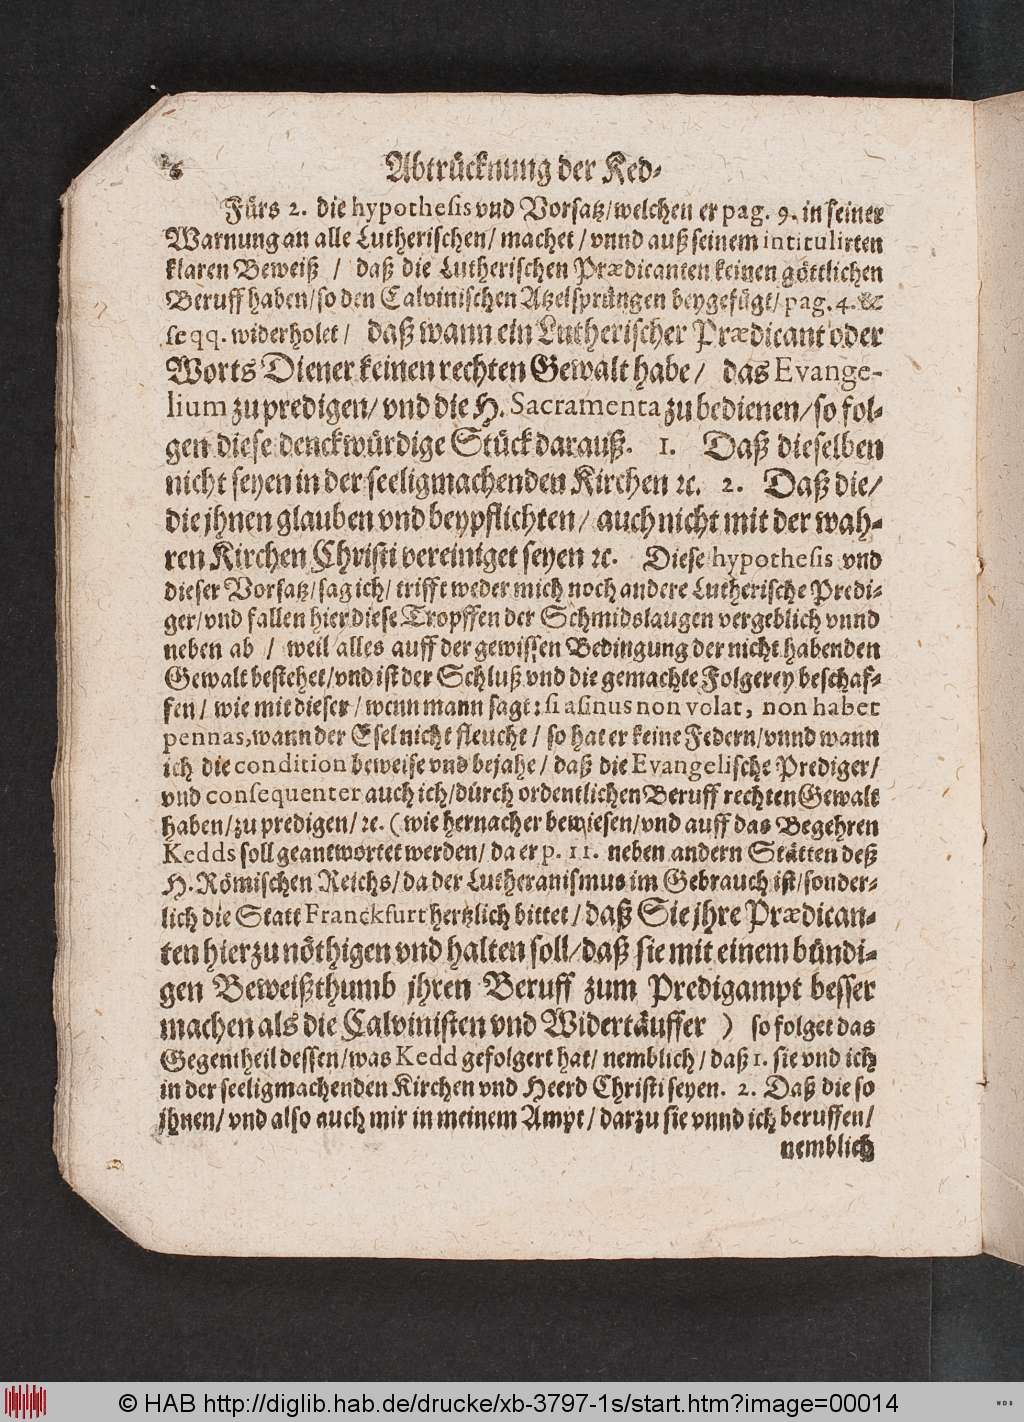 6
Abtrücknung der Ked-
Fürs 2. die hypothesis vnd Vorsatz/welchen er pag. 9. in seiner
Warnung an alle Lutherischen/ machet / vnnd auß seinem intitulirten
klaren Beweiß / daß die Lutherischen Prædicanten keinen göttlichen
Beruff haben/so den Calvinischen Atzelsprüngen beygefügt/ pag. 4. &
seqq. widerholet / daß wann ein Lutherischer Prædicant oder
Worts Diener keinen rechten Gewalt habe / das Evange-
lium zu predigen/ vnd die H. Sacramenta zu bedienen/so fol-
gen diese denckwürdige Stück darauß. 1. Daß dieselben
nicht seyen in der seeligmachenden Kirchen ꝛc. 2. Daß die/
die jhnen glauben vnd beypflichten / auch nicht mit der wah-
ren Kirchen Christi vereiniget seyen ꝛc. Diese hypothesis vnd
dieser Vorsatz/sag ich/ trifft weder mich noch andere Lutherische Predi-
ger/vnd fallen hier diese Tropffen der Schmidslaugen vergeblich vnnd
neben ab / weil alles auff der gewissen Bedingung der nicht habenden
Gewalt bestehet/vnd ist der Schluß vnd die gemachte Folgerey beschaf-
fen / wie mit dieser / wenn mann sagt: si asinus non volat, non habet
pennas, wann der Esel nicht fleucht / so hat er keine Federn/vnnd wann
ich die condition beweise vnd bejahe / daß die Evangelische Prediger/
vnd consequenter auch ich/dürch ordentlichen Beruff rechten Gewalt
haben/zu predigen/ ꝛc. ( wie hernacher bewiesen/vnd auff das Begehren
Kedds soll geantwortet werden/ da er p. 11. neben andern Stätten deß
H. Römischen Reichs/da der Lutheranismus im Gebrauch ist/sonder-
lich die Statt Franckfurt hertzlich bittet / daß Sie jhre Prædican-
ten hierzu nöthigen vnd halten soll/daß sie mit einem bündi-
gen Beweißthumb jhren Beruff zum Predigampt besser
machen als die Calvinisten vnd Widertäuffer ) so folget das
Gegentheil dessen/was Kedd gefolgert hat/ nemblich / daß 1. sie vnd ich
in der seeligmachenden Kirchen vnd Heerd Christi seyen. 2. Daß die so
jhnen/ vnd also auch mir in meinem Ampt / darzu sie vnnd ich beruffen/
nemblich
© HAB http://diglib.hab.de/drucke/xb-3797-1s/start.htm?image=00014